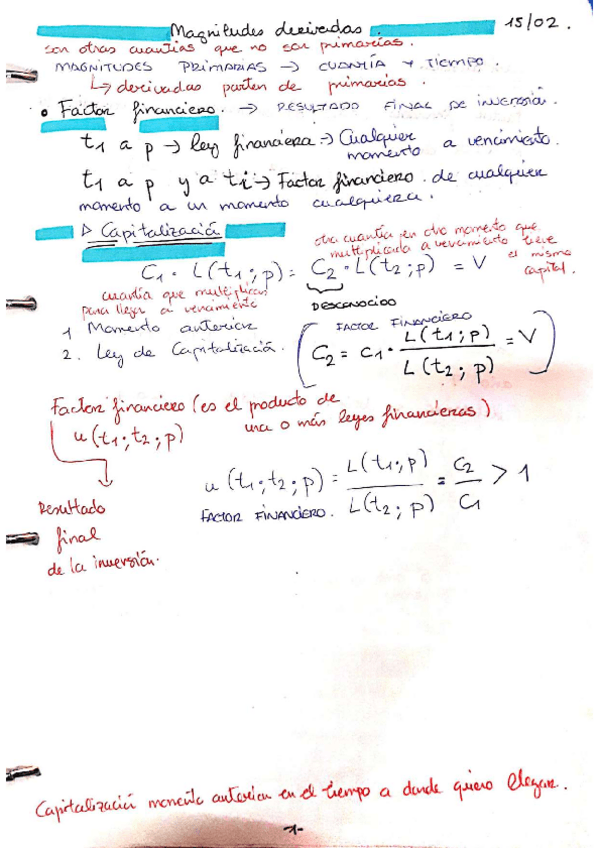 Magnitudes derivadas. 15/02.
son otras cuantías que no son primarias.
MAGNITUDES PRIMARIAS → CUANTÍA Y TIEMPO.
↳ derivadas parten de primarias.
• Factor financiero. → RESULTADO FINAL DE INVERSIÓN.
t1 a p → ley financiera → Cualquier momento a vencimiento.
t1 a p y a ti → Factor financiero de cualquier
momento a un momento cualquiera.
▷ Capitalización
otra cuantía en otro momento que
multiplicada a vencimiento tiene
el mismo
capital.
C1 · L(t1; p) = C2 · L(t2; p) = V
cuantía que multiplicas
para llegar a vencimiento
DESCONOCIDO
1 Momento anterior
2. Ley de Capitalización.
FACTOR FINANCIERO
C2 = C1 · L(t1; p) / L(t2; p) = V
Factor financiero (es el producto de
una o más leyes financieras)
u(t1; t2; p)
u(t1; t2; p) = L(t1; p) / L(t2; p) = C2 / C1 > 1
FACTOR FINANCIERO.
Resultado
final
de la inversión.
Capitalización momento anterior en el tiempo a donde quiero llegar.
-1-